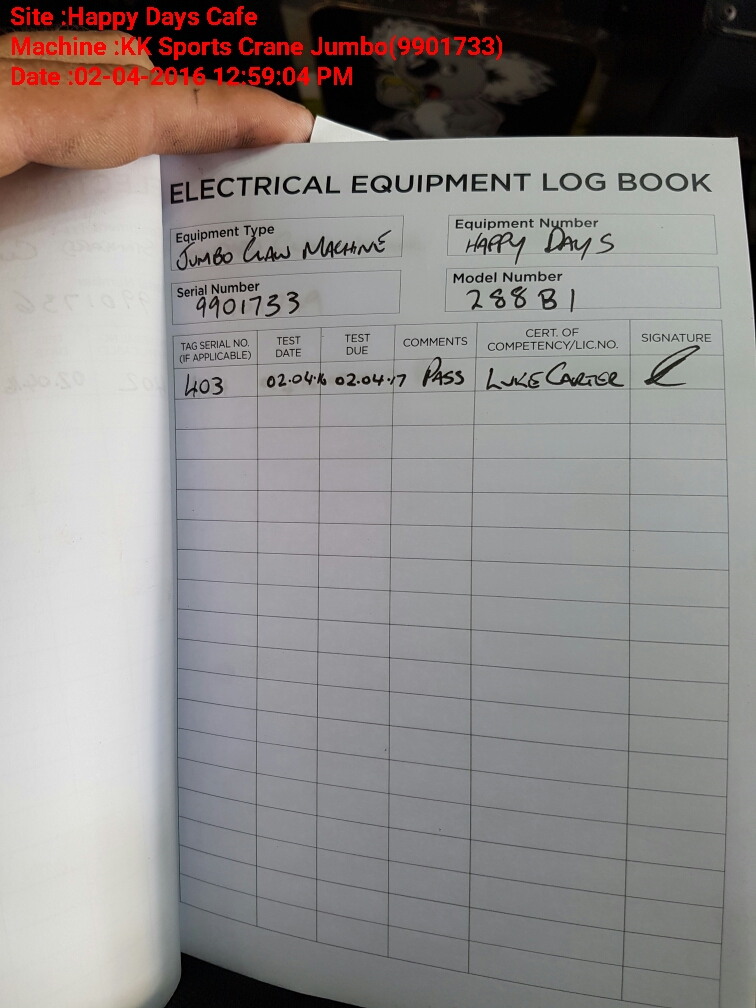 Site :Happy Days Cafe
Machine :KK Sports Crane Jumbo(9901733)
Date :02-04-2016 12:59:04 PM
ELECTRICAL EQUIPMENT LOG BOOK
Equipment Type
JUMBO CLAW MACHINE
Equipment Number
HAPPY DAYS
Serial Number
9901733
Model Number
288B1
TAG SERIAL NO. (IF APPLICABLE) TEST DATE TEST DUE COMMENTS CERT. OF COMPETENCY/LIC.NO. SIGNATURE
403 02.04.16 02.04.17 PASS LUKE CARTER